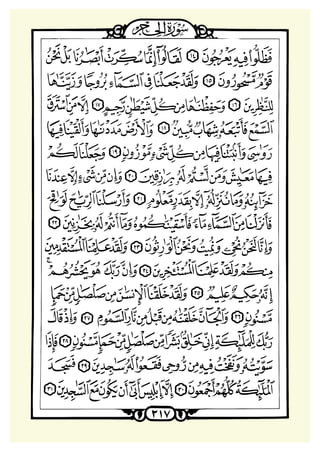 سُورَةُ الحِجْرِ
فَظَلُّوا۟ فِيهِ يَعْرُجُونَ ١٤ لَقَالُوٓا۟ إِنَّمَا سُكِّرَتْ أَبْصَٰرُنَا بَلْ نَحْنُ
قَوْمٌ مَّسْحُورُونَ ١٥ وَلَقَدْ جَعَلْنَا فِى ٱلسَّمَآءِ بُرُوجًا وَزَيَّنَّٰهَا
لِلنَّٰظِرِينَ ١٦ وَحَفِظْنَٰهَا مِن كُلِّ شَيْطَٰنٍ رَّجِيمٍ ١٧ إِلَّا مَنِ ٱسْتَرَقَ
ٱلسَّمْعَ فَأَتْبَعَهُۥ شِهَابٌ مُّبِينٌ ١٨ وَٱلْأَرْضَ مَدَدْنَٰهَا وَأَلْقَيْنَا فِيهَا
رَوَٰسِىَ وَأَنۢبَتْنَا فِيهَا مِن كُلِّ شَىْءٍ مَّوْزُونٍ ١٩ وَجَعَلْنَا لَكُمْ
فِيهَا مَعَٰيِشَ وَمَن لَّسْتُمْ لَهُۥ بِرَٰزِقِينَ ٢٠ وَإِن مِّن شَىْءٍ إِلَّا عِندَنَا
خَزَآئِنُهُۥ وَمَا نُنَزِّلُهُۥٓ إِلَّا بِقَدَرٍ مَّعْلُومٍ ٢١ وَأَرْسَلْنَا ٱلرِّيَٰحَ لَوَٰقِحَ
فَأَنزَلْنَا مِنَ ٱلسَّمَآءِ مَآءً فَأَسْقَيْنَٰكُمُوهُ وَمَآ أَنتُمْ لَهُۥ بِخَٰزِنِينَ ٢٢
وَإِنَّا لَنَحْنُ نُحْىِۦ وَنُمِيتُ وَنَحْنُ ٱلْوَٰرِثُونَ ٢٣ وَلَقَدْ عَلِمْنَا ٱلْمُسْتَقْدِمِينَ
مِنكُمْ وَلَقَدْ عَلِمْنَا ٱلْمُسْتَـْٔخِرِينَ ٢٤ وَإِنَّ رَبَّكَ هُوَ يَحْشُرُهُمْ
إِنَّهُۥ حَكِيمٌ عَلِيمٌ ٢٥ وَلَقَدْ خَلَقْنَا ٱلْإِنسَٰنَ مِن صَلْصَٰلٍ مِّنْ حَمَإٍ
مَّسْنُونٍ ٢٦ وَٱلْجَآنَّ خَلَقْنَٰهُ مِن قَبْلُ مِن نَّارِ ٱلسَّمُومِ ٢٧ وَإِذْ قَالَ
رَبُّكَ لِلْمَلَٰٓئِكَةِ إِنِّى خَٰلِقٌۢ بَشَرًا مِّن صَلْصَٰلٍ مِّنْ حَمَإٍ مَّسْنُونٍ ٢٨ فَإِذَا
سَوَّيْتُهُۥ وَنَفَخْتُ فِيهِ مِن رُّوحِى فَقَعُوا۟ لَهُۥ سَٰجِدِينَ ٢٩ فَسَجَدَ
ٱلْمَلَٰٓئِكَةُ كُلُّهُمْ أَجْمَعُونَ ٣٠ إِلَّآ إِبْلِيسَ أَبَىٰٓ أَن يَكُونَ مَعَ ٱلسَّٰجِدِينَ ٣١
٣١٧